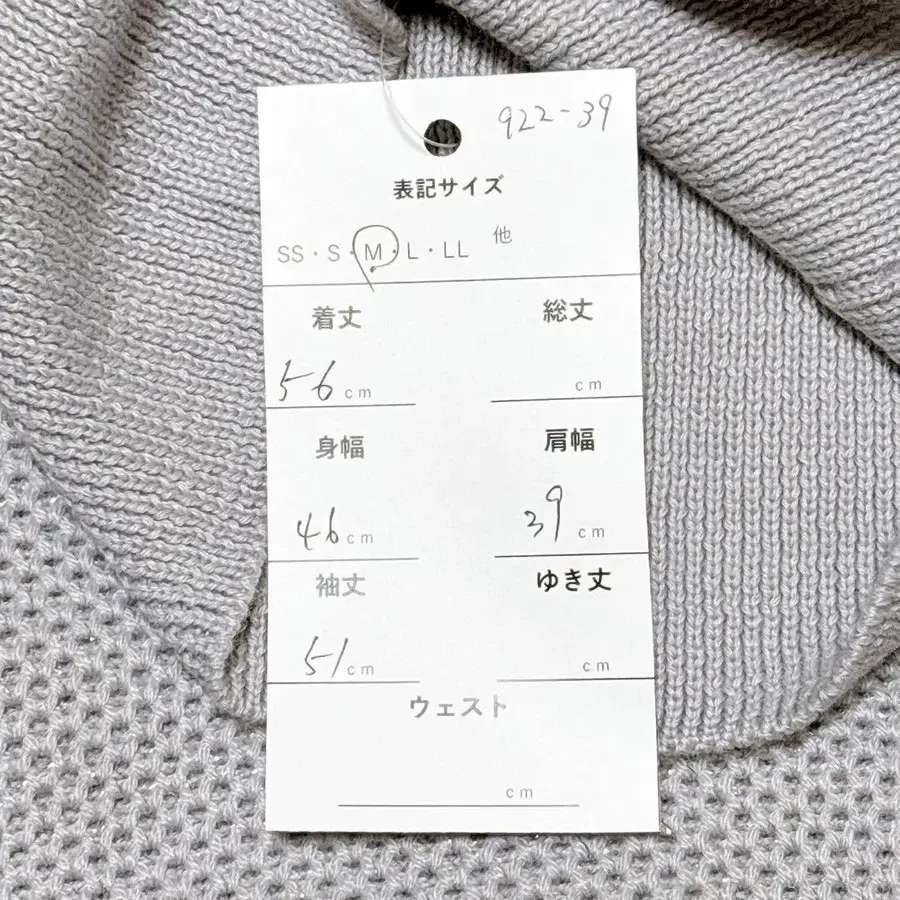 922-39
表記サイズ
SS・S・M・L・LL 他
着丈 総丈
56 cm cm
身幅 肩幅
46 cm 39 cm
袖丈 ゆき丈
51 cm cm
ウェスト
cm